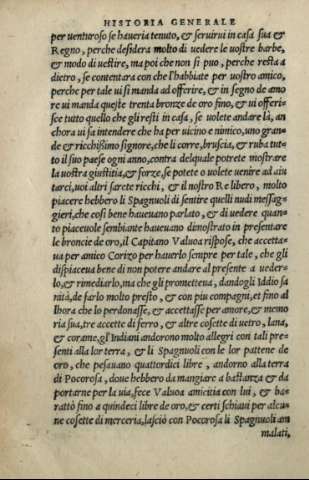 HISTORIA GENERALE
per uenturoso se haueria tenuto, & seruirui in casa sua &
Regno, perche desidera molto di uedere le uostre barbe,
& modo di uestire, ma poi che non si puo, perche resta a
dietro, se contentara con che l'habbiate per uostro amico,
perche per tale ui si manda ad offerire, & in segno de amo
re ui manda queste trenta bronze de oro fino, & ui offeri-
sce tutto quello che gli resti in casa, se uolete andare là, an
chora ui fa intendere che ha per uicino e nimico, uno gran-
de & ricchißimo signore, che li corre, bruscia, & ruba tut-
to il suo paese ogni anno, contra del quale potrete mostrare
la uostra giustitia, & forze, se potete o uolete uenire ad aiu
tarci, uoi altri sarete ricchi, & il nostro Re libero, molto
piacere hebbero li Spagnuoli di sentire quelli nudi messag-
gieri, che così bene haueuano parlato, & di uedere quan-
to piaceuole sembiante haueuano dimostrato in presentare
le broncie de oro, il Capitano Valuoa rispose, che accetta-
ua per amico Corizo per hauerlo sempre per tale, che gli
dispiaceua bene di non potere andar al presente a ueder-
lo, & rimediarlo, ma che gli prometteua, dandogli Iddio sa
nità, de farlo molto presto, & con piu compagni, et fino al
lhora che lo perdonasse, & accettasse per amore, & memo
ria sua, tre accette di ferro, & altre cosette di uetro, lana,
& corame, gl'Indiani anderono molto allegri con tali pre-
senti alla lor terra, & li Spagnuoli con le lor pattene de
oro, che pesauano quattordici libre, andorno alla terra
di Pocorosa, doue hebbero da mangiare a bastanza & da
portarne per la uia, fece Valuoa amicitia con lui, & ba-
rattò fino a quindeci libre de oro, & certi schiaui per alcu-
ne cosette di merceria, lasciò con Pocorosa li Spagnuoli am
malati,